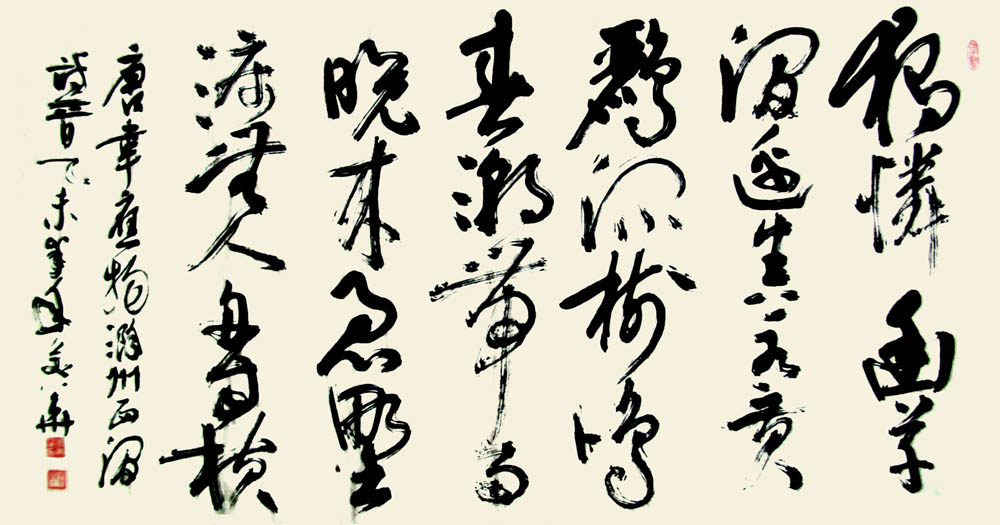 獨憐幽草
澗邊生上有黃
鸝深樹鳴
春潮帶雨
晚來急野
渡無人舟自橫
唐韋應物滁州西澗
詩一首